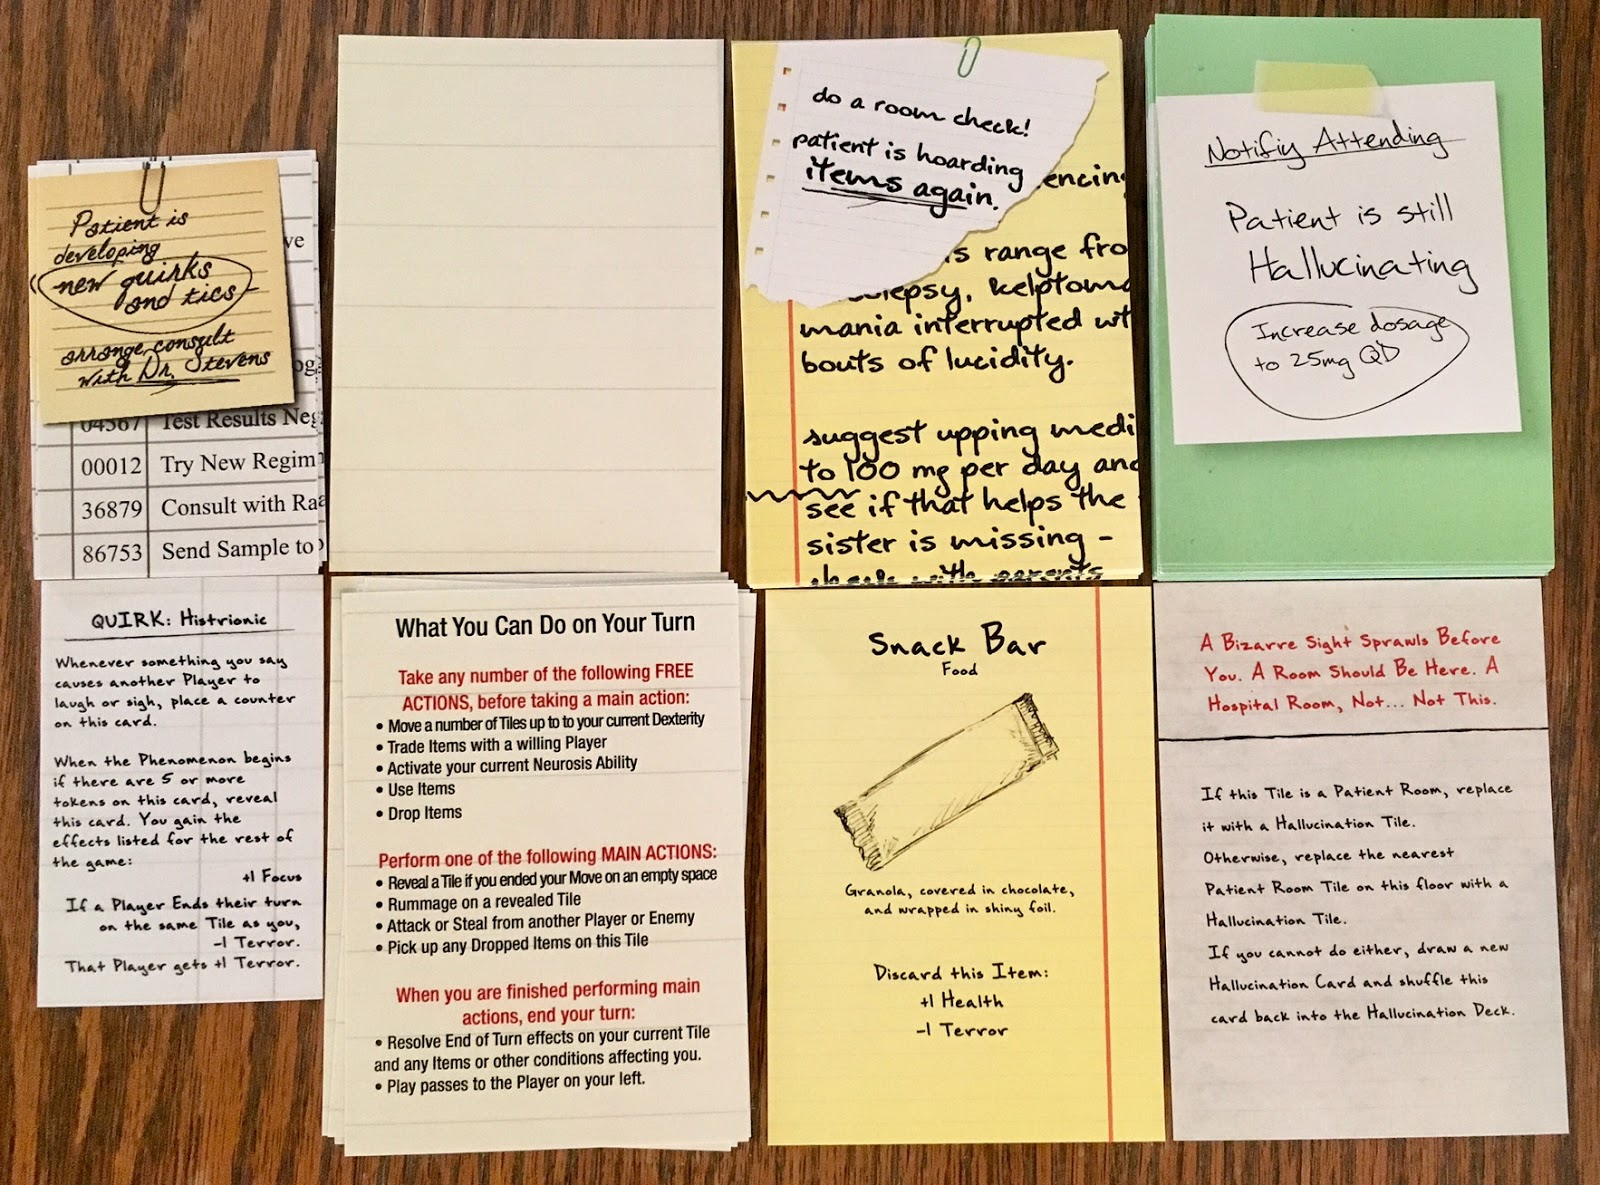 Patient is
developing
new quirks
and tics
arrange consult
with Dr. Stevens
04567 Test Results Neg
00012 Try New Regim
36879 Consult with Ra
86753 Send Sample to
do a room check!
patient is hoarding
items again.
encing
s range from
lepsy, kelptoma
mania interrupted wt
bouts of lucidity.
suggest upping medi
to 100 mg per day and
see if that helps the
sister is missing -
check with parents
Notifiy Attending
Patient is still
Hallucinating
Increase dosage
to 25mg QD
QUIRK: Histrionic
Whenever something you say
causes another Player to
laugh or sigh, place a counter
on this card.
When the Phenomenon begins
if there are 5 or more
tokens on this card, reveal
this card. You gain the
effects listed for the rest of
the game:
+1 Focus
If a Player Ends their turn
on the same Tile as you,
-1 Terror.
That Player gets +1 Terror.
What You Can Do on Your Turn
Take any number of the following FREE
ACTIONS, before taking a main action:
• Move a number of Tiles up to to your current Dexterity
• Trade Items with a willing Player
• Activate your current Neurosis Ability
• Use Items
• Drop Items
Perform one of the following MAIN ACTIONS:
• Reveal a Tile if you ended your Move on an empty space
• Rummage on a revealed Tile
• Attack or Steal from another Player or Enemy
• Pick up any Dropped Items on this Tile
When you are finished performing main
actions, end your turn:
• Resolve End of Turn effects on your current Tile
and any Items or other conditions affecting you.
• Play passes to the Player on your left.
Snack Bar
Food
Granola, covered in chocolate,
and wrapped in shiny foil.
Discard this Item:
+1 Health
-1 Terror
A Bizarre Sight Sprawls Before
You. A Room Should Be Here. A
Hospital Room, Not... Not This.
If this Tile is a Patient Room, replace
it with a Hallucination Tile.
Otherwise, replace the nearest
Patient Room Tile on this floor with a
Hallucination Tile.
If you cannot do either, draw a new
Hallucination Card and shuffle this
card back into the Hallucination Deck.